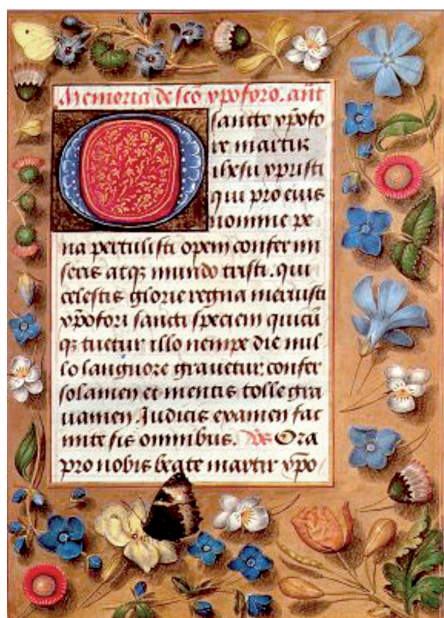 Memoria de sco xpoforo. añt
O sancte xpofo
re martir
ihesu xpristi
qui pro eius
nomine pe
na pertulisti opem confer mi
seris atqz mundo tristi. qui
celestis glorie regna meruisti
xpofori sancti speciem quicũ
qz tuetur illo nempe die nul
lo languore grauetur confer
solamen et mentis tolle gra
uamen. Judicis examen fac
mite sis omnibus. Vs Ora
pro nobis beate martir xpo